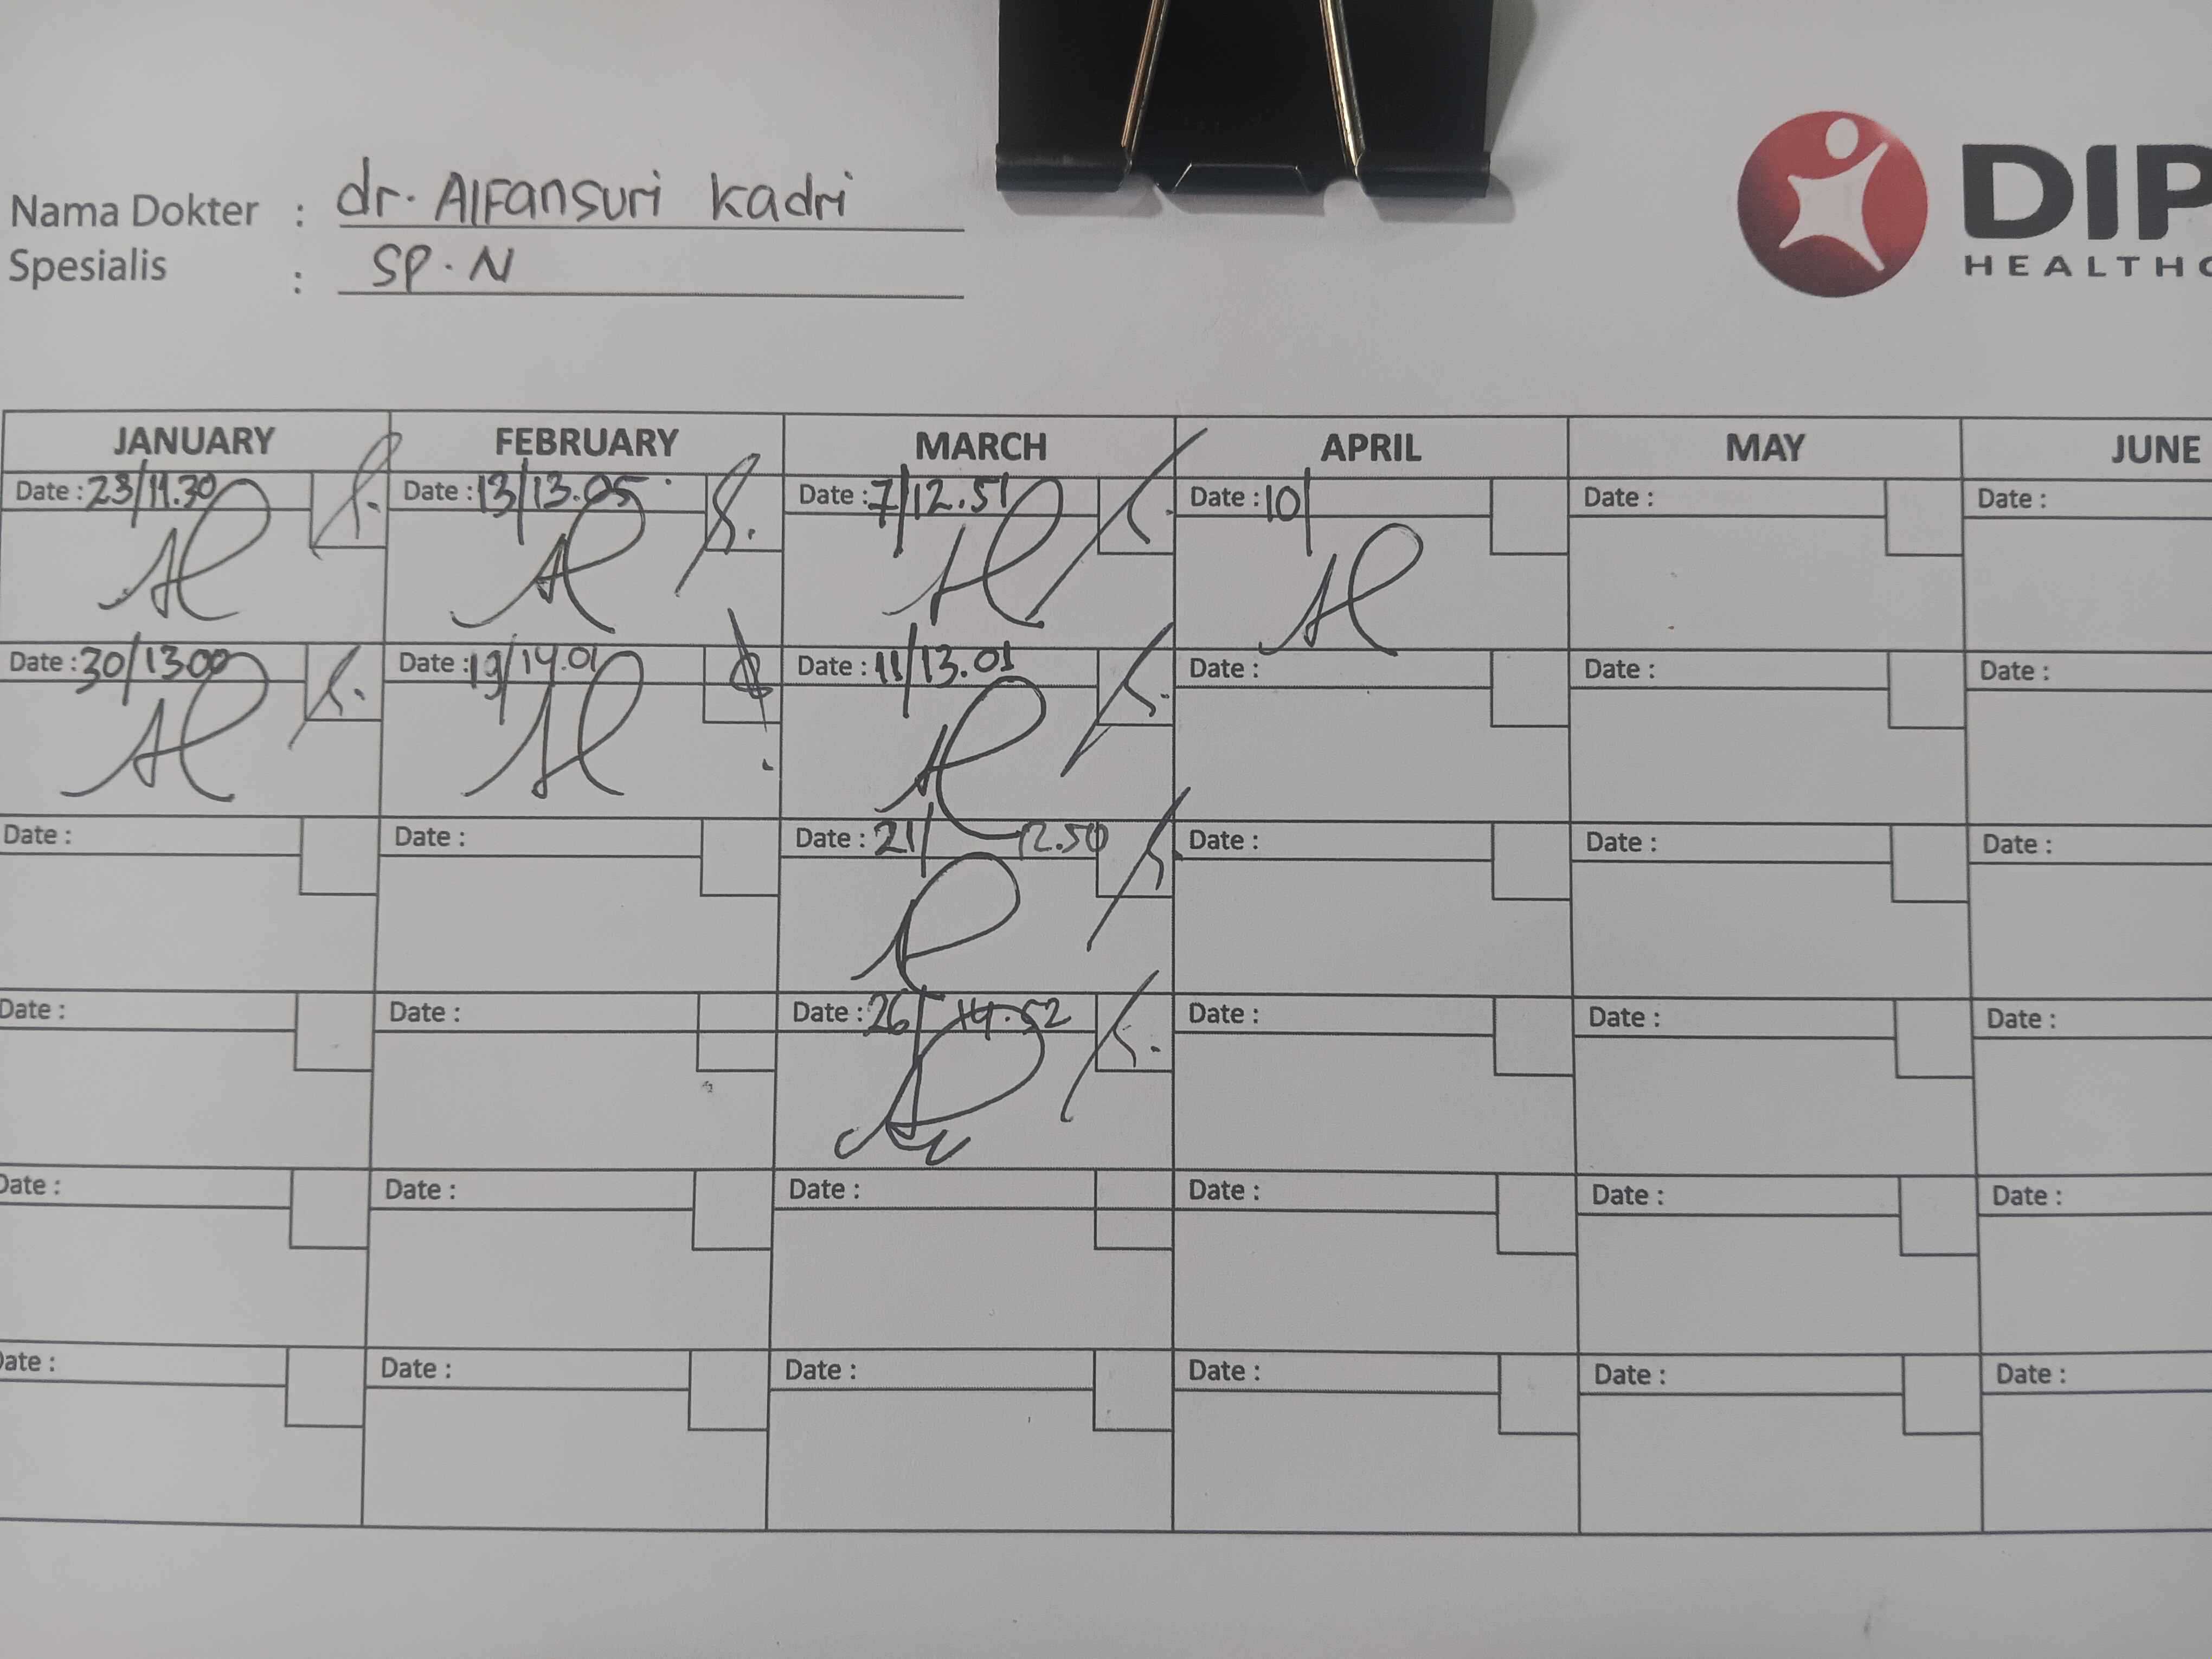 Nama Dokter : dr. Alfansuri Kadri
Spesialis : SP. N
DIP
HEALTHC
JANUARY FEBRUARY MARCH APRIL MAY JUNE
Date : 23/11.30 Date : 13/13.05 Date : 7/12.51 Date : 10/ Date : Date :
Date : 30/13.00 Date : 19/14.01 Date : 11/13.01 Date : Date : Date :
Date : Date : Date : 21/ 12.50 Date : Date : Date :
Date : Date : Date : 26/ 14.52 Date : Date : Date :
Date : Date : Date : Date : Date : Date :
Date : Date : Date : Date : Date : Date :